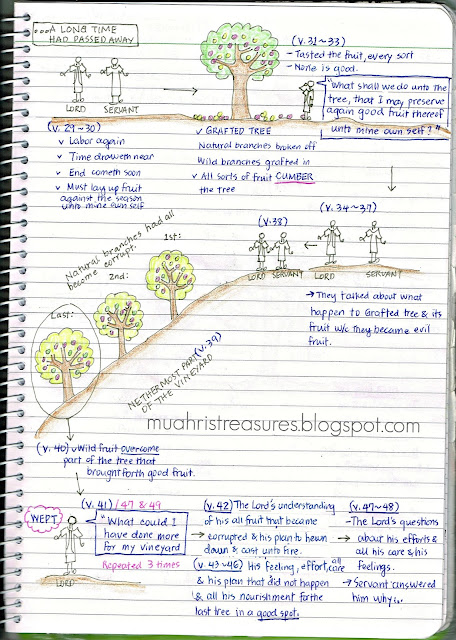 ...A LONG TIME
HAD PASSED AWAY
LORD SERVANT
(v. 31~33)
- Tasted the fruit, every sort
- None is good.
"What shall we do unto the
tree, that I may preserve
again good fruit thereof
unto mine own self?"
(v. 29~30)
✓ Labor again
✓ Time draweth near
✓ End cometh soon
✓ Must lay up fruit
against the season
unto mine own self
✓ GRAFTED TREE
Natural branches broken off
Wild branches grafted in
✓ All sorts of fruit CUMBER
the tree
(v. 34~37)
(v.38)
LORD SERVANT LORD SERVANT
→ They talked about what
happen to Grafted tree & its
fruit w/c they became evil
fruit.
Natural branches had all
become corrupt.
1st:
2nd:
Last:
NETHERMOST PART (v. 39)
OF THE VINEYARD
muahristreasures.blogspot.com
(v. 40) ✓ Wild fruit overcome
part of the tree that
brought forth good fruit.
(v. 41) / 47 & 49
WEPT
"What could I
have done more
for my vineyard
Repeated 3 times
LORD
(v. 42) The Lord's understanding
of his all fruit that became
corrupted & his plan to hewn
down & cast unto fire.
(v. 43~46) His feeling, effort, all care
& his plan that did not happen
& all his nourishment for the
last tree in a good spot.
(v. 47~48)
- The Lord's questions
→ about his efforts &
all his care & his
feelings.
→ Servant answered
him why...